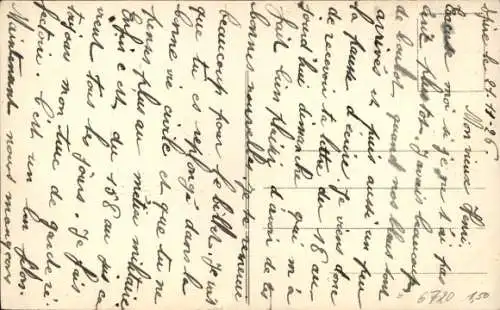 le 21-11-26
Mon vieux
Excuse moi si je ne t'ai pas
écrit plus tôt. J'avais beaucoup
de boulot quand nos bleus sont
arrivés et puis aussi un peu
la flemme d'écrire. Je viens donc
de recevoir ta lettre du 18 au-
jourd'hui dimanche qui m'a
fait bien plaisir d'avoir de tes
bonnes nouvelles. Je te remercie
beaucoup pour le billet. Je vois
que tu es replongé dans la
bonne vie civile et que tu ne
penses plus au métier militaire
Enfin c'est du 18 au jus ca
vient tous les jours. Je fais
toujours mon truc de garde ré-
fectoire. C'est un bon filon.
Maintenant nous mangeons
6720 1,50